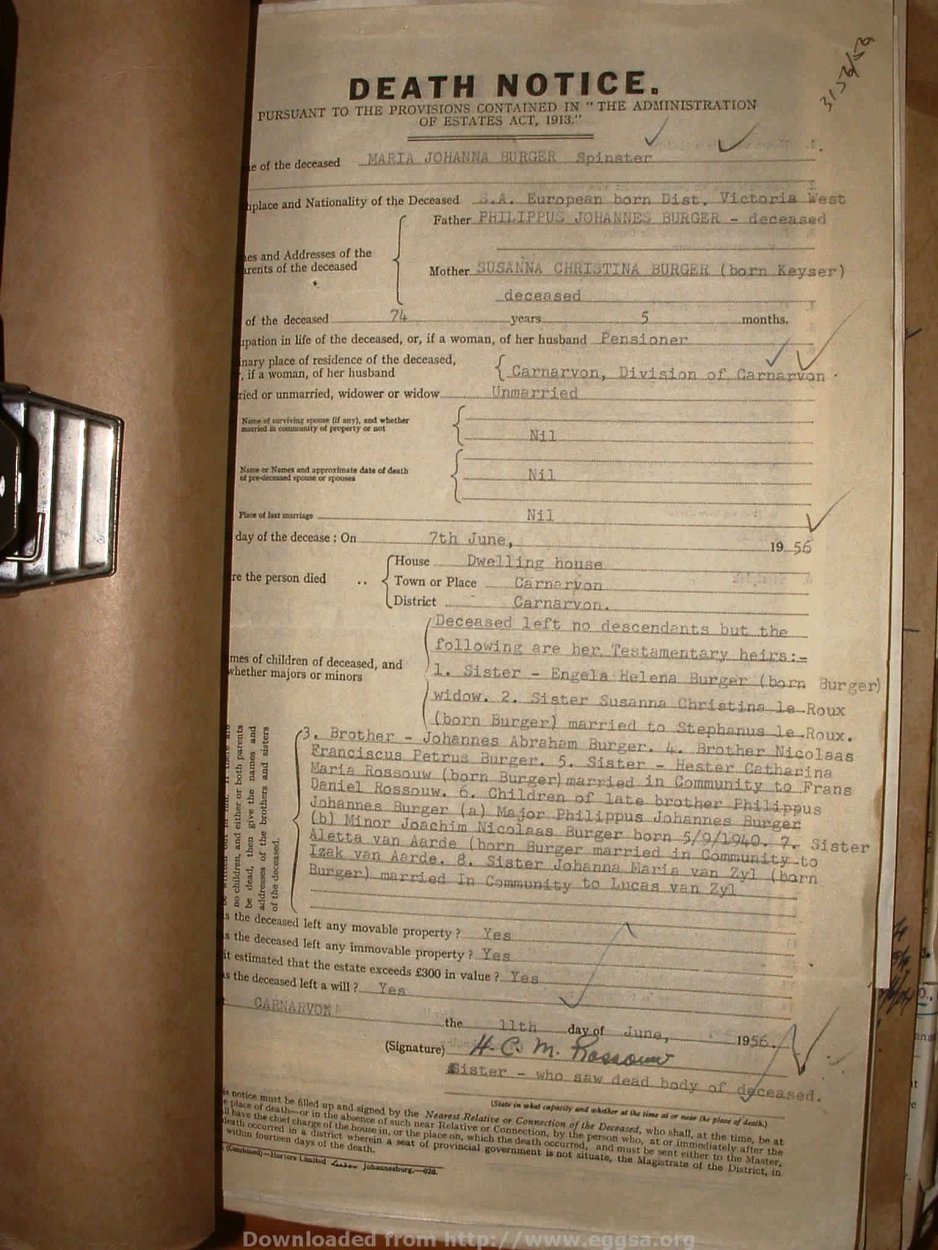 DEATH NOTICE.
PURSUANT TO THE PROVISIONS CONTAINED IN "THE ADMINISTRATION
OF ESTATES ACT, 1913."
e of the deceased MARIA JOHANNA BURGER Spinster
hplace and Nationality of the Deceased S.A. European born Dist. Victoria West
Father PHILIPPUS JOHANNES BURGER - deceased
es and Addresses of the
rents of the deceased
Mother SUSANNA CHRISTINA BURGER (born Keyser)
deceased
of the deceased 74 years 5 months.
upation in life of the deceased, or, if a woman, of her husband Pensioner
inary place of residence of the deceased,
, if a woman, of her husband
Carnarvon, Division of Carnarvon.
ried or unmarried, widower or widow Unmarried
Name of surviving spouse (if any), and whether
married in community of property or not
Nil
Name or Names and approximate date of death
of pre-deceased spouse or spouses
Nil
Place of last marriage Nil
day of the decease : On 7th June, 19 56
House Dwelling house
re the person died .. Town or Place Carnarvon
District Carnarvon.
Deceased left no descendants but the
following are her Testamentary heirs:-
mes of children of deceased, and
whether majors or minors
1. Sister - Engela Helena Burger (born Burger)
widow. 2. Sister Susanna Christina le Roux
(born Burger) married to Stephanus le Roux.
3. Brother - Johannes Abraham Burger. 4. Brother Nicolaas
Franciscus Petrus Burger. 5. Sister - Hester Catharina
Maria Rossouw (born Burger) married in Community to Frans
Daniel Rossouw. 6. Children of late brother Philippus
Johannes Burger (a) Major Philippus Johannes Burger
(b) Minor Joachim Nicolaas Burger born 5/9/1940. 7. Sister
Aletta van Aarde (born Burger married in Community to
Izak van Aarde. 8. Sister Johanna Maria van Zyl (born
Burger) married In Community to Lucas van Zyl
no children, and either or both parents
be dead, then give the names and
addresses of the brothers and sisters
of the deceased.
s the deceased left any movable property ? Yes
s the deceased left any immovable property ? Yes
it estimated that the estate exceeds £300 in value ? Yes
s the deceased left a will ? Yes
CARNARVON the 11th day of June, 1956.
(Signature) H. C. M. Rossouw
Sister - who saw dead body of deceased.
(State in what capacity and whether at the time at or near the place of death.)
is notice must be filled up and signed by the Nearest Relative or Connection of the Deceased, who shall, at the time, be at
e place of death—or in the absence of such near Relative or Connection, by the person who, at or immediately after the
ll have the chief charge of the house in, or the place on, which the death occurred, and must be sent either to the Master,
death occurred in a district wherein a seat of provincial government is not situate, the Magistrate of the District, in
within fourteen days of the death.
(Combined)—Hortors Limited Johannesburg.—628.
Downloaded from http://www.eggsa.org